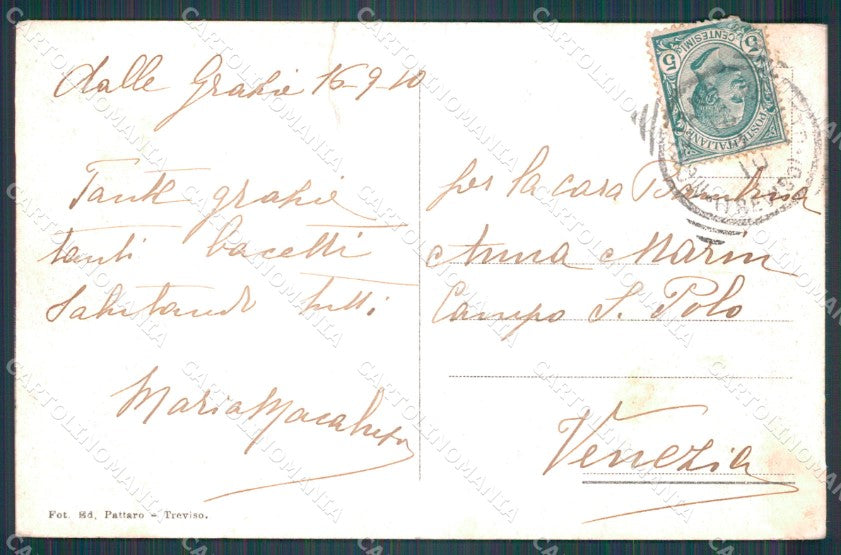 dalle Grazie 16-9-10
Tante grazie
tanti bacetti
Salutando tutti
Maria
per la cara Bambina
Anna Marin
Campo S. Polo
Venezia
Fot. Ed. Pattaro - Treviso.
POSTE ITALIANE
CENTESIMI
5 5
CARTOLINOMANIA